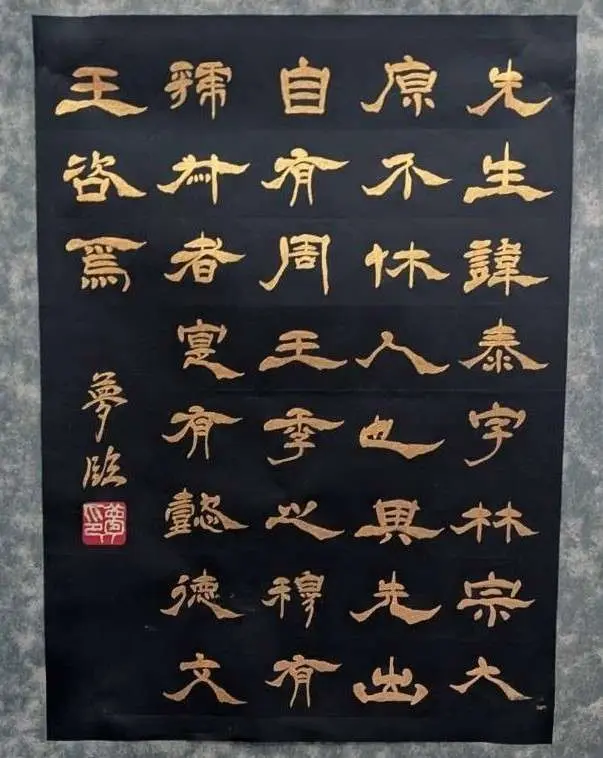 先生諱泰字林宗大
原不休人也其先出
自有周王季之穆有
虢叔者寔有懿德文
王咨焉
夢